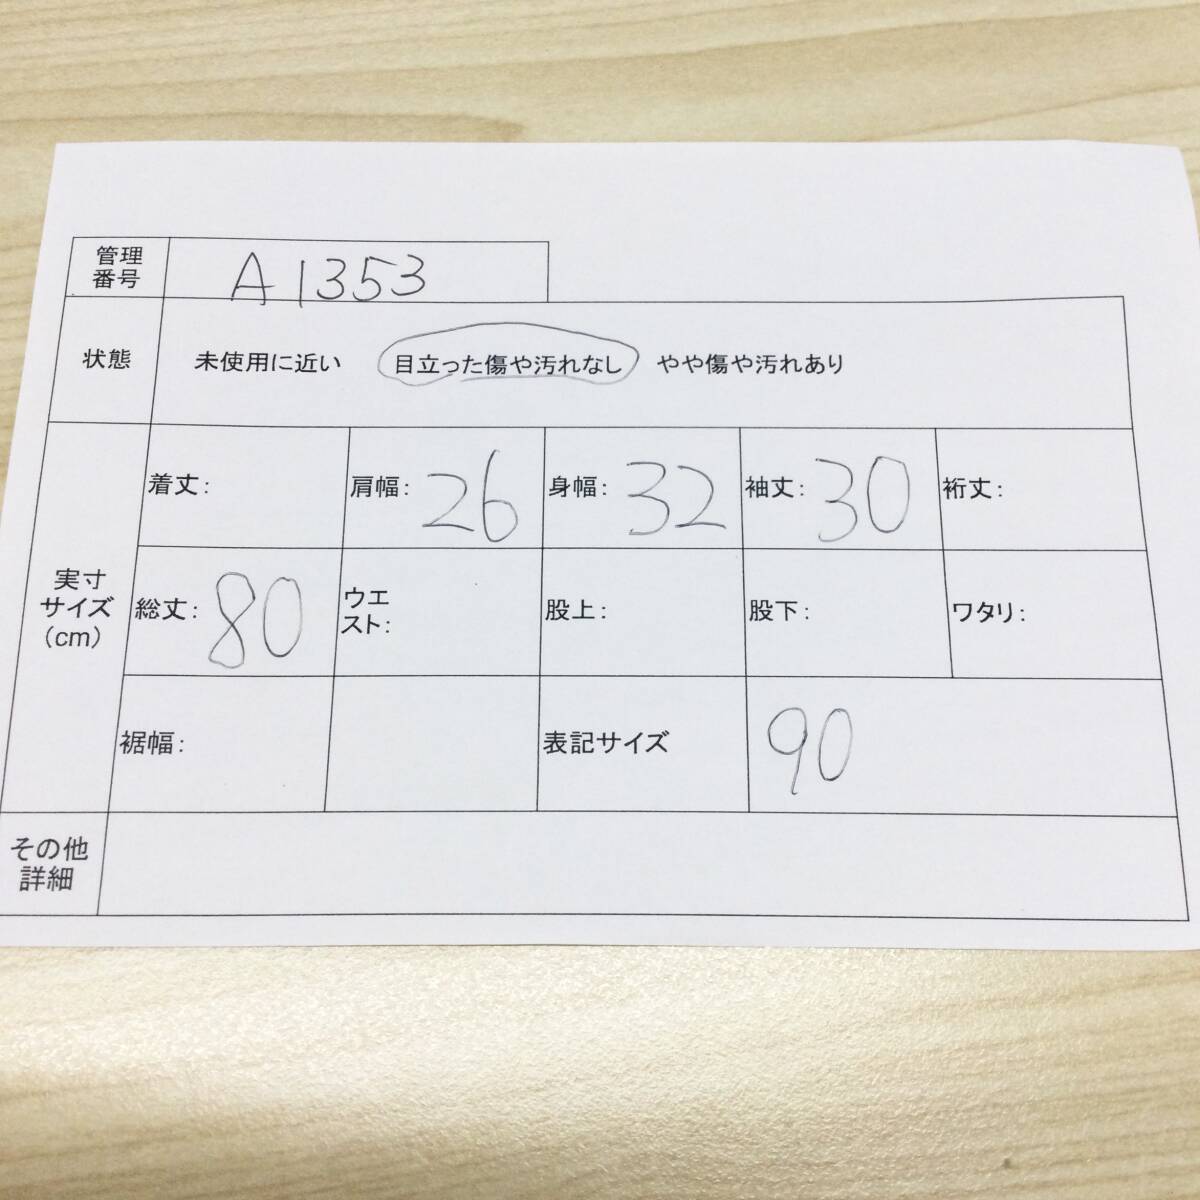 管理
番号
A1353
状態
未使用に近い 目立った傷や汚れなし やや傷や汚れあり
実寸
サイズ
(cm)
着丈:
肩幅: 26
身幅: 32
袖丈: 30
裄丈:
総丈: 80
ウエ
スト:
股上:
股下:
ワタリ:
裾幅:
表記サイズ
90
その他
詳細